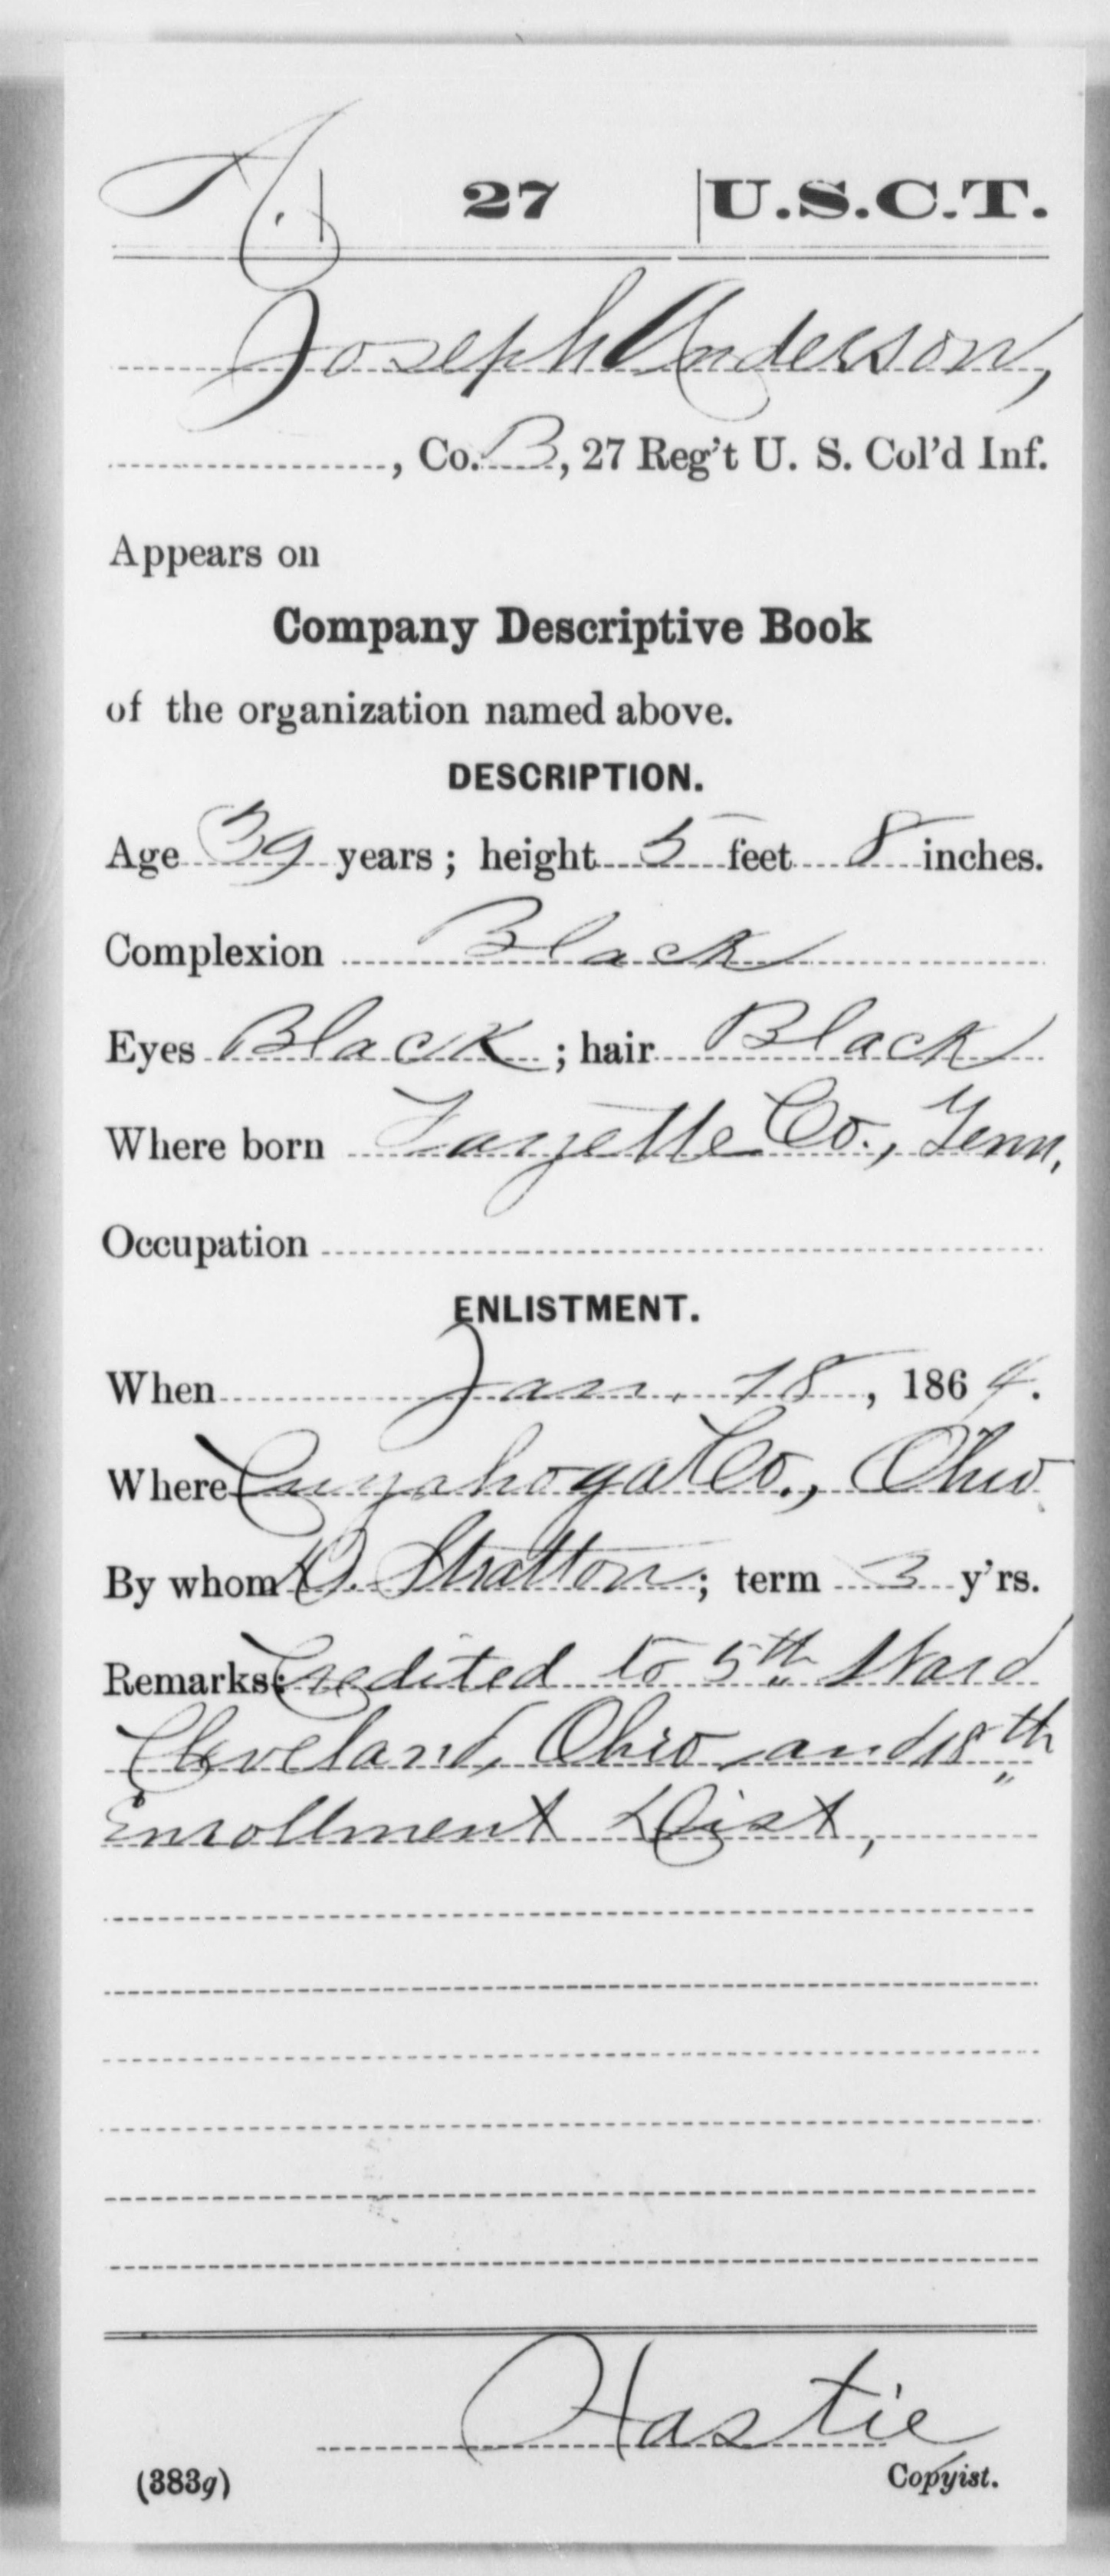 A. | 27 | U.S.C.T.
Joseph Anderson,
, Co. B, 27 Reg't U. S. Col'd Inf.
Appears on
Company Descriptive Book
of the organization named above.
DESCRIPTION.
Age 39 years; height 5 feet 8 inches.
Complexion Black
Eyes Black; hair Black
Where born Fayette Co., Tenn.
Occupation
ENLISTMENT.
When Jan. 18, 1864.
Where Cuyahoga Co., Ohio
By whom D. Stratton; term 3 y'rs.
Remarks: Credited to 5th Ward
Cleveland, Ohio and 18th
Enrollment Dist,
Hastie
(383g) Copyist.